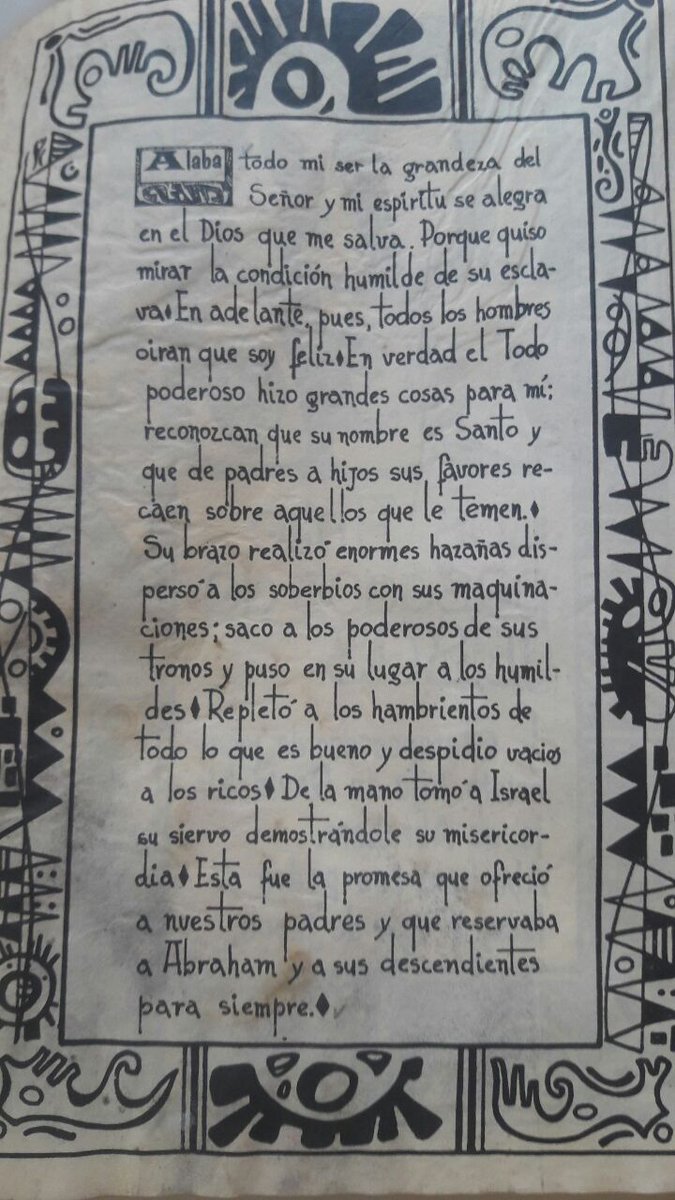 Alaba todo mi ser la grandeza del
Señor y mi espíritu se alegra
en el Dios que me salva. Porque quiso
mirar la condición humilde de su escla-
va♦En adelante, pues, todos los hombres
oiran que soy feliz♦En verdad el Todo
poderoso hizo grandes cosas para mí;
reconozcan que su nombre es Santo y
que de padres a hijos sus favores re-
caen sobre aquellos que le temen.♦
Su brazo realizó enormes hazañas dis-
persó a los soberbios con sus maquina-
ciones; saco a los poderosos de sus
tronos y puso en su lugar a los humil-
des♦Repletó a los hambrientos de
todo lo que es bueno y despidio vacios
a los ricos♦De la mano tomó a Israel
su siervo demostrándole su misericor-
dia♦Esta fue la promesa que ofreció
a nuestros padres y que reservaba
a Abraham y a sus descendientes
para siempre.♦